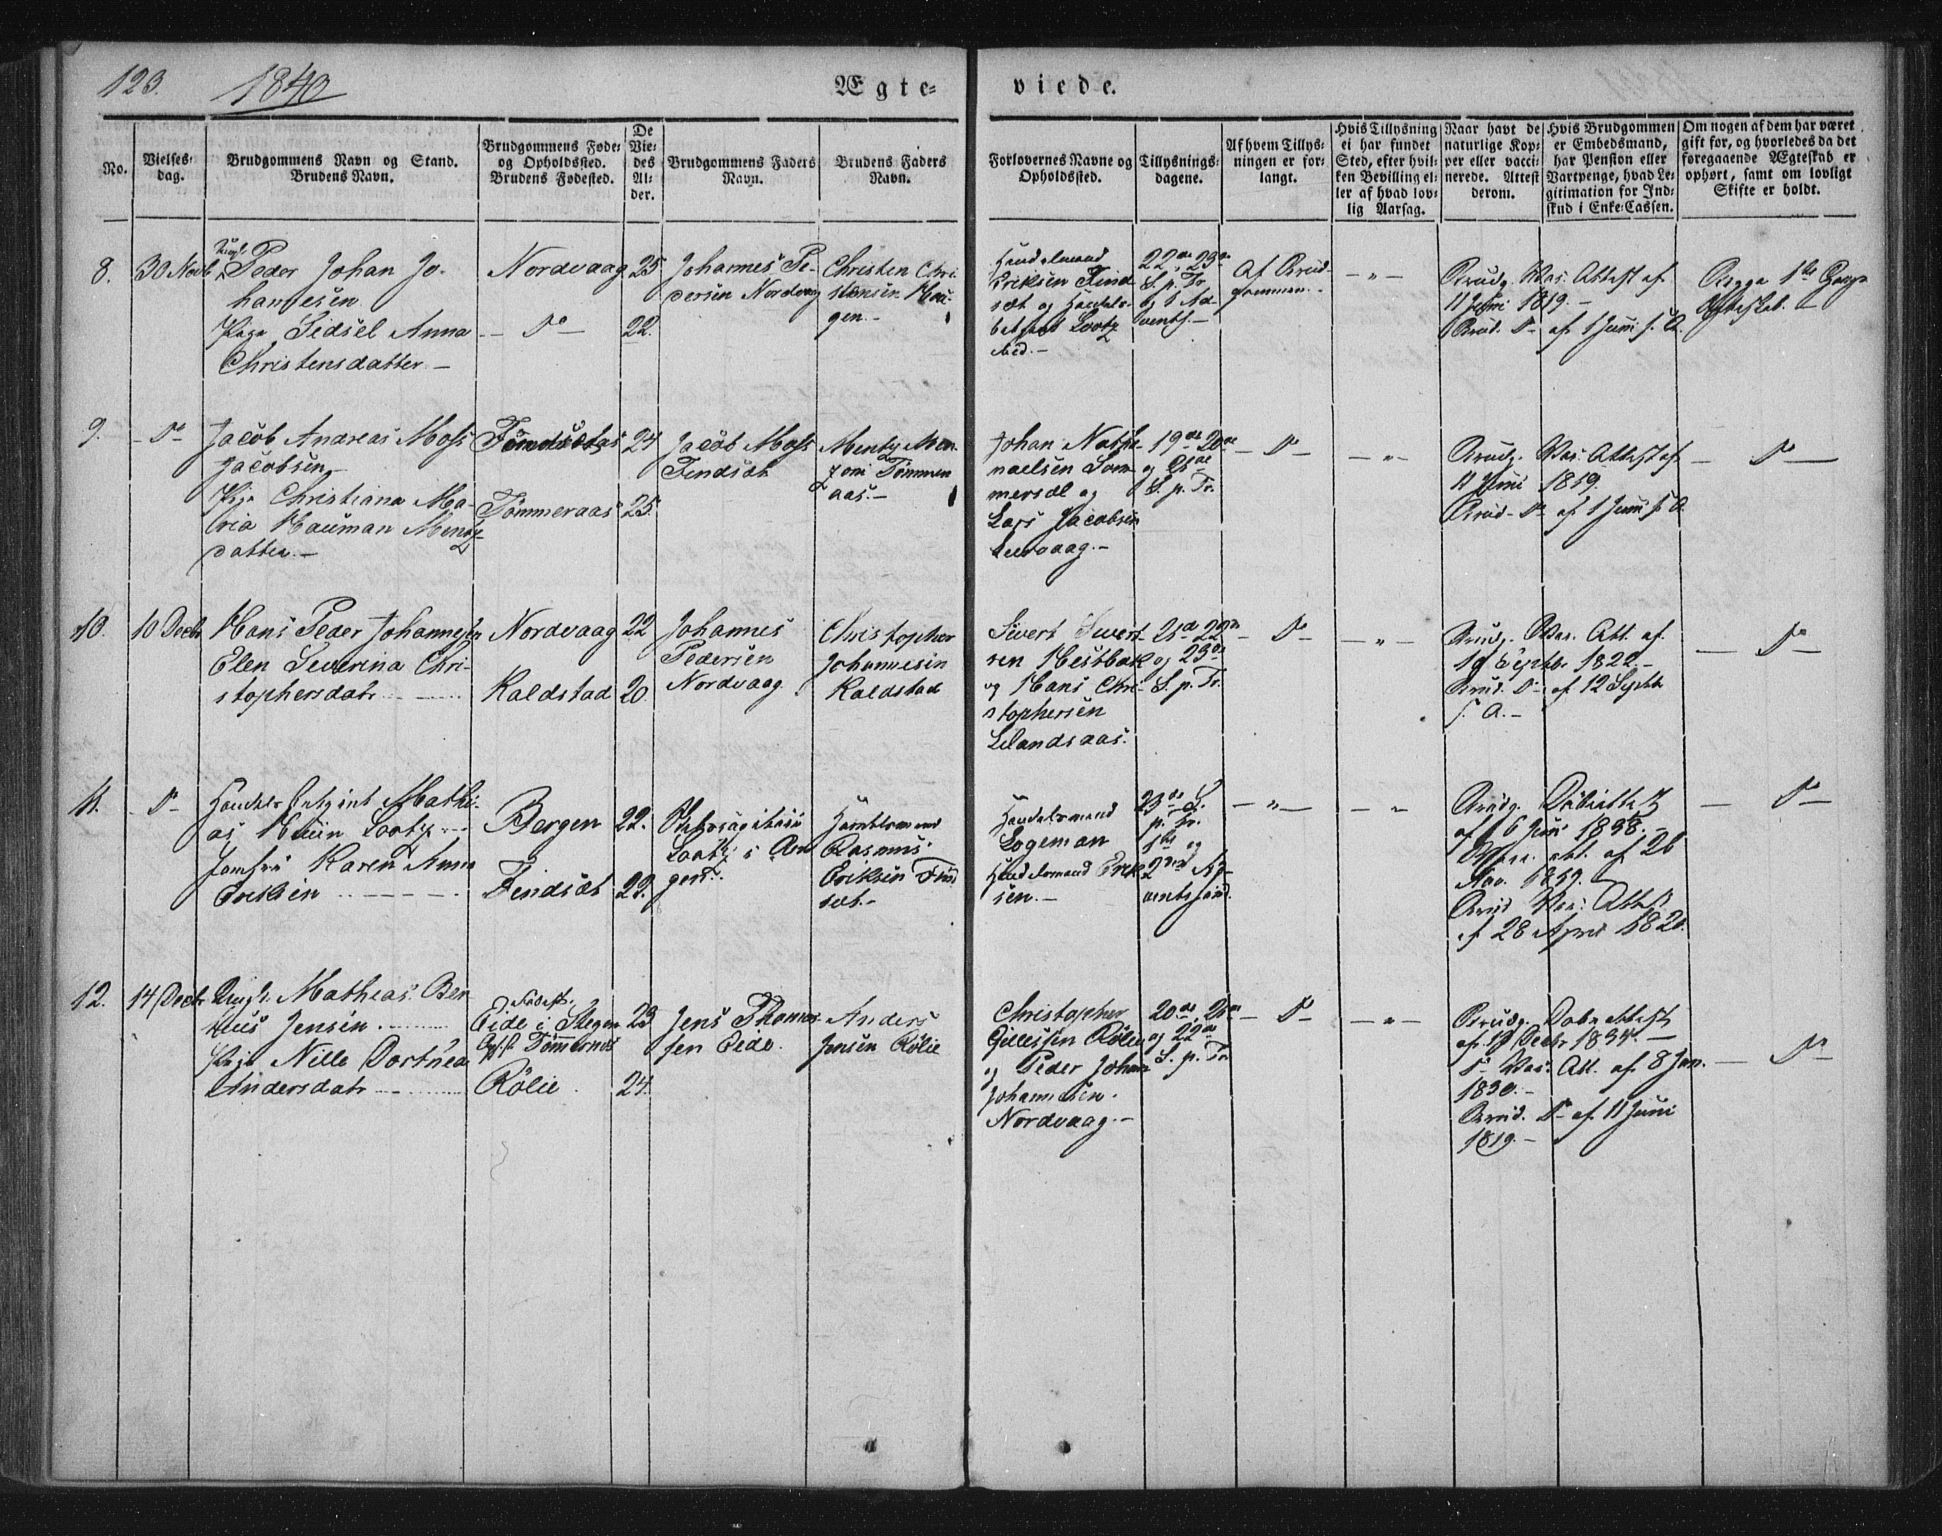 123. 1840 Ægte- viede.
No.
Vielses-
dag.
Brudgommens Navn og Stand.
Brudens Navn.
Brudgommens Føde-
og Opholdssted.
Brudens Fødested.
De
Vie-
des
Al-
der.
Brudgommens Faders
Navn.
Brudens Faders
Navn.
Forlovernes Navne og
Opholdssted.
Tillysnings-
dagene.
Af hvem Tillys-
ningen er for-
langt.
Hvis Tillysning
ei har fundet
Sted, efter hvil-
ken Bevilling el-
ler af hvad lov-
lig Aarsag.
Naar havt de
naturlige Kop-
per eller vacci-
nerede. Attest
derom.
Hvis Brudgommen
er Embedsmand,
har Pension eller
Vartpenge, hvad Le-
gitimation for Ind-
skud i Enke-Cassen.
Om nogen af dem har været
gift før, og hvorledes da det
foregaaende Ægteskab er
ophørt, samt om lovligt
Skifte er holdt.
8.
30 Novb
Ungk.
Peder Johan Jo-
hannesen
Pige Sidsel Anna
Christensdatter.—
Nordvaag
— Do —
25
22.
Johannes Pe-
dersen Nordvaag
Christen Chri-
stensen Hau-
gen.—
Handelsmand
Eriksen Find-
sæt og Handels-
betjent Lootz
ibid.—
22de, 23de
S. p. Tr.
og 1 Ad-
vents.—
Af Brud-
gommen.—
— " —
Brudg. Vac. Attest af
11 Juni 1819.—
Brud. Do af 1 Juni s. A.
Begge 1ste Gang
Ægteskab.—
9.
— Do
Jacob Andreas Moss
Jacobsen
Pige Christiana Ma-
ria Hauman Mentz-
datter.—
Findsæt
Tømmeraas
24
25.
Jacob Moss
Findsæt
Mentz Men-
zoni Tømmer
aas.—
Johan Nath-
naelsen Som-
mersæl og
Lars Jacobsen
Leervaag.—
19de 20de
og 21de
S. p. Tr.
— Do —
— " —
Brudg. Vac. Attest af
11 Juni 1819.
Brud. Do af 1 Juni s. A.
— Do —
10.
10 Decbr
Hans Peder Johannesen
Elen Severina Chri-
stophersdatr
Nordvaag
Kaldstad
22
20.
Johannes
Pedersen
Nordvaag.
Christopher
Johannesen
Kaldstad
Sivert Sivert-
sen Hestbak
og Hans Chri-
stophersen
Lilandsaas.
21de 22de
og 23de
S. p. Tr.
— Do —
— " —
Brudg. Vac. Att. af
19 Septbr 1820.—
Brud. Do af 12 Septbr
s. A.—
— Do —
11.
Do
Handels
Mathi-
as Hein Lootz
Jomfru Karen Anna
Eriksen
Bergen
Findsæt
22.
22.
Lootz i Ber
gen.
Handelsmand
Rasmus
Eriksen Find
sæt.—
Handelsmand
Logeman
Handelsmand Erik-
sen.—
23de S.
p. Tr.
1ste og
2den Ad-
ventssønd.
— " —
— " —
Brudg. Døbeattest
af 16 Juni 1838.
Vac. att. af 26
Nov. 1819.
Brud Vac. Attest
af 28 April 1820.
— Do —
12.
14 Decbr
Ungk. Mathias Ber
thus Jensen.
Pige Nille Dorthea
Andersdatr
Fødest.
Eide i Stegen
Oph.st. Tømmernes
Rølie.
23
24.
Jens Thomas-
sen Eide.
Anders
Jensen Rølie
Christopher
Gillessen Rølie
og Peder Johan
Johannesen
Nordvaag.—
20de, 21de
og 22de
S. p. Tr.
— Do —
— " —
Brudg. Dobeattest
af 19 Decbr 1834.—
Do Vac. Att. af 8 Jan.
1830.—
Brud. Do af 11 Juni
1819.—
— Do —